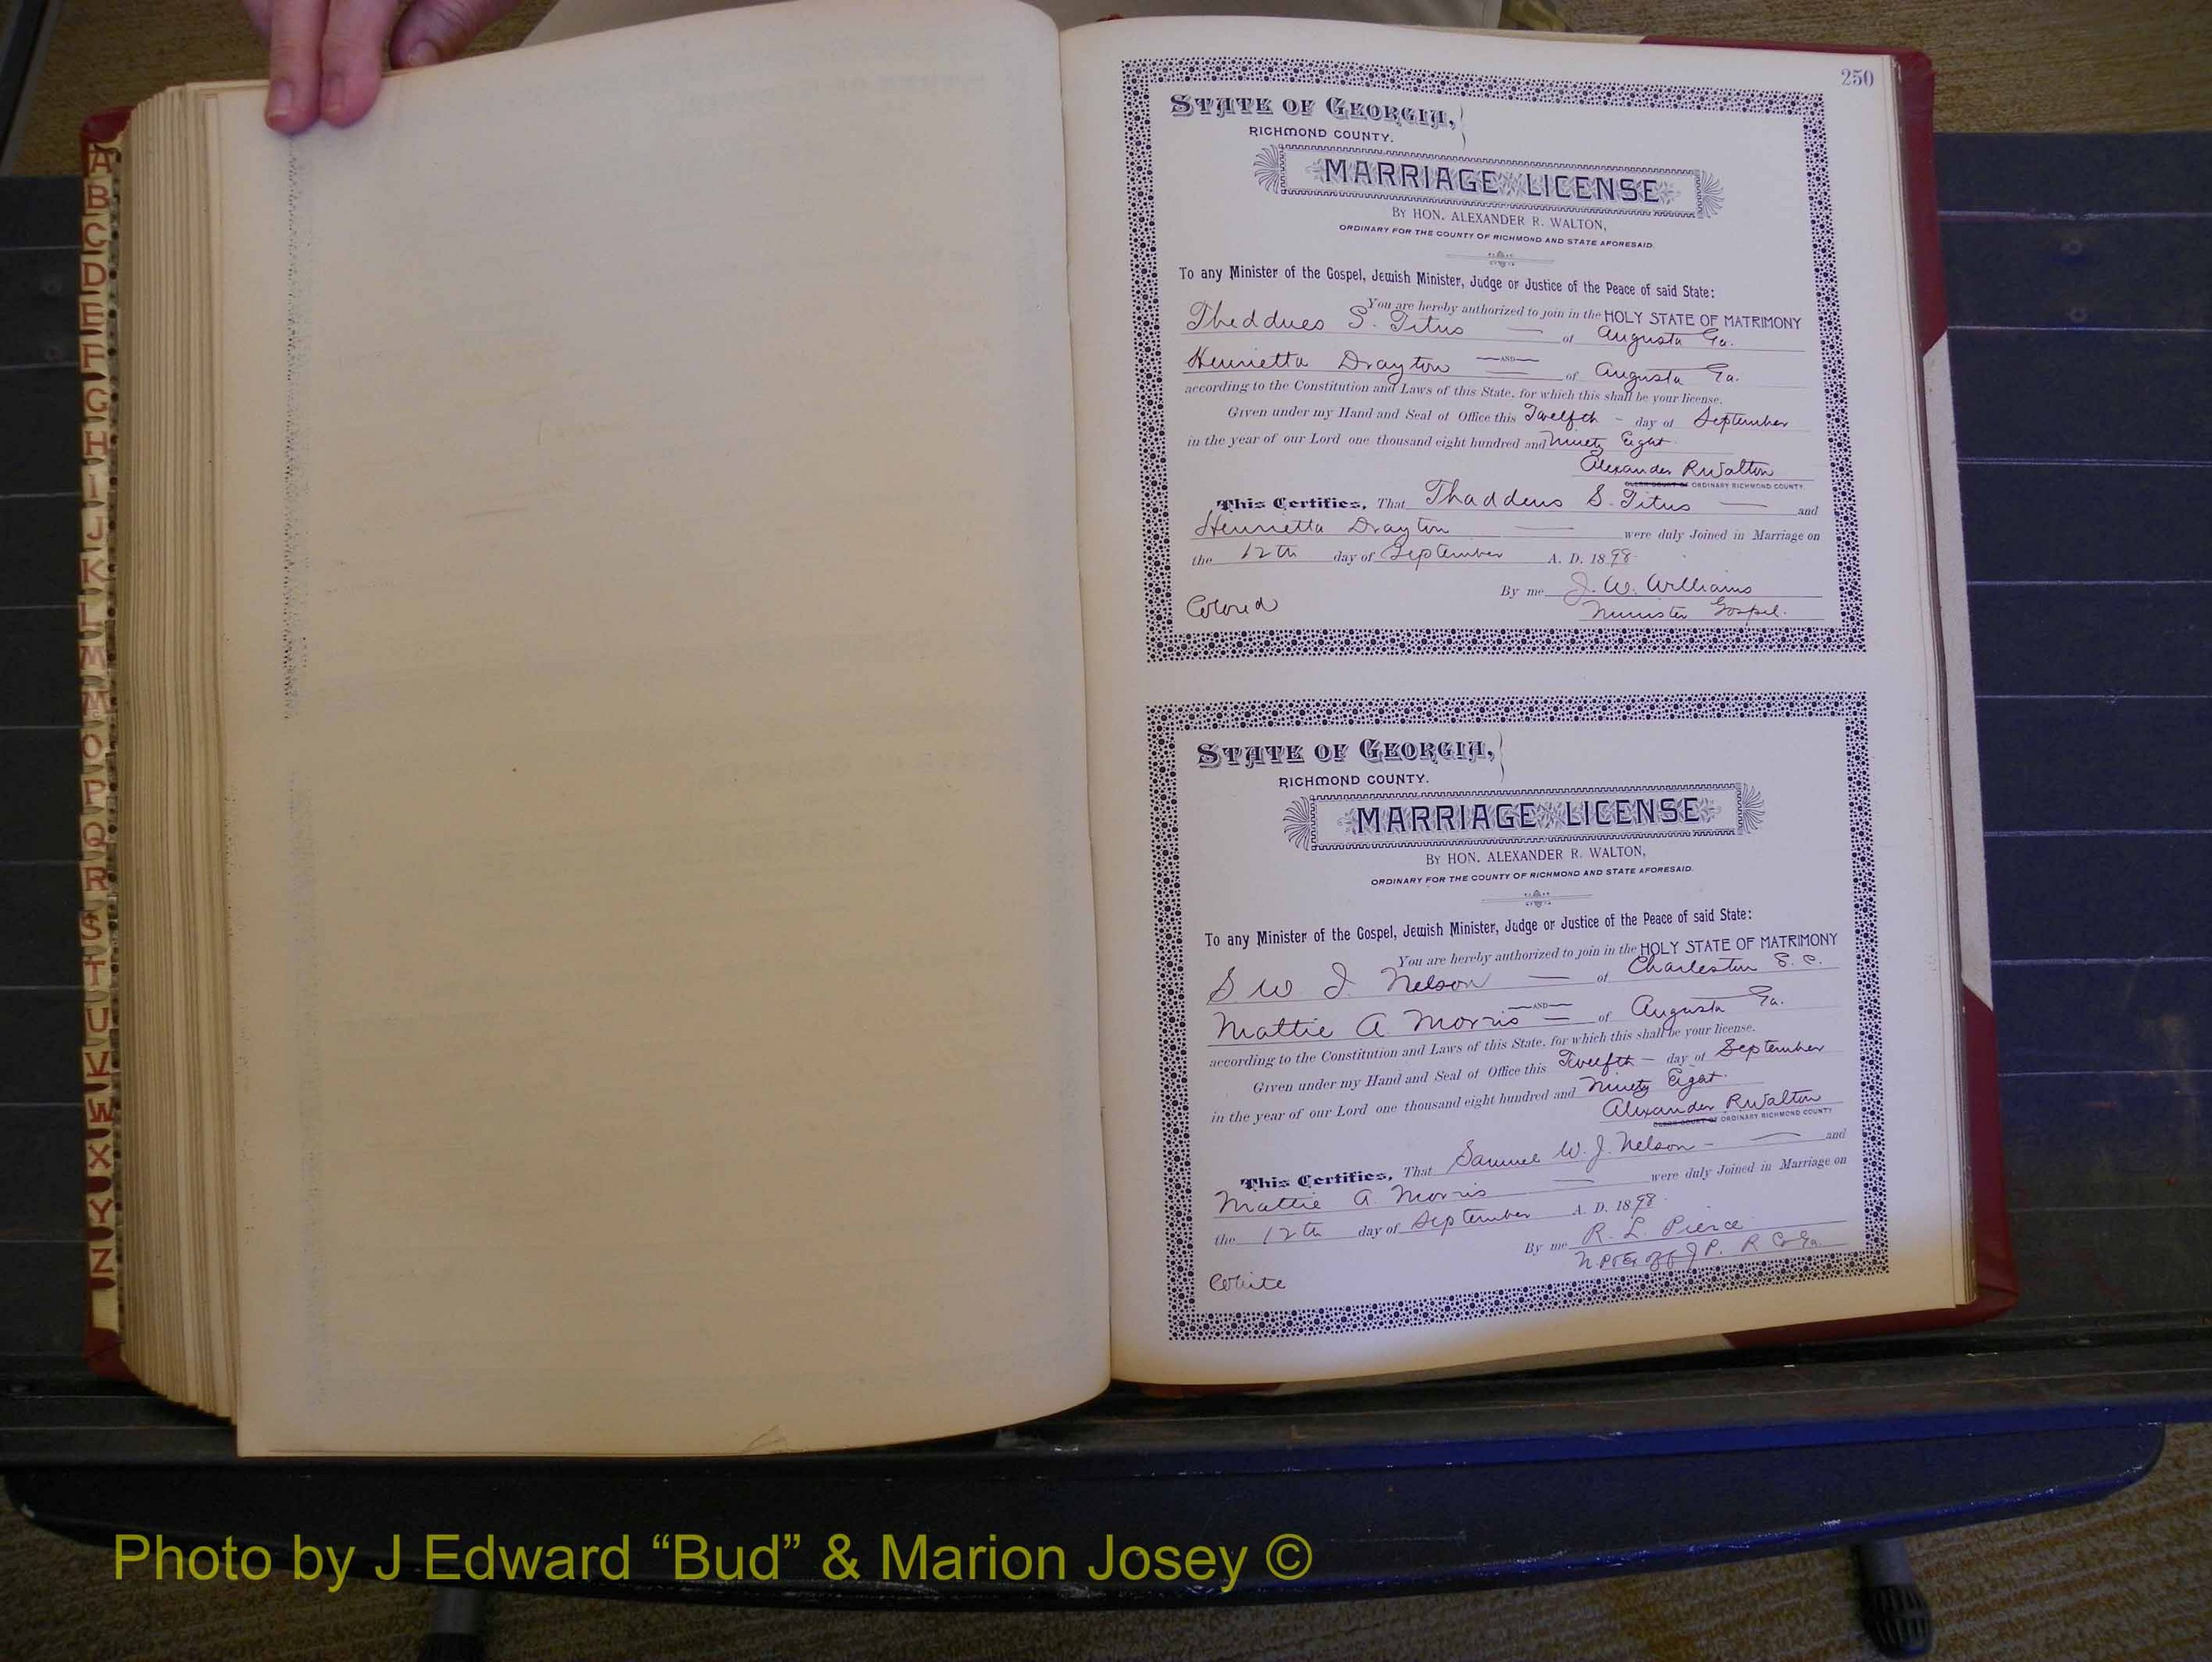 A
B
C
D
E
F
G
H
I
J
K
L
M
Mc
O
P
Q
R
S
T
U
V
W
X
Y
Z
250
STATE OF GEORGIA,
RICHMOND COUNTY.
MARRIAGE LICENSE
BY HON. ALEXANDER R. WALTON,
ORDINARY FOR THE COUNTY OF RICHMOND AND STATE AFORESAID.
To any Minister of the Gospel, Jewish Minister, Judge or Justice of the Peace of said State:
You are hereby authorized to join in the HOLY STATE OF MATRIMONY
Theddues S. Titus — of Augusta Ga.
—AND—
Henrietta Drayton — of Augusta Ga.
according to the Constitution and Laws of this State, for which this shall be your license.
Given under my Hand and Seal of Office this Twelfth - day of September
in the year of our Lord one thousand eight hundred and Ninety Eight.
Alexander R Walton
CLERK COURT OF ORDINARY RICHMOND COUNTY.
This Certifies, That Thaddeus S. Titus — and
Henrietta Drayton — were duly Joined in Marriage on
the 12th day of September A. D. 1898
By me J. W. Williams
Colored
Minister Gospel.
STATE OF GEORGIA,
RICHMOND COUNTY.
MARRIAGE LICENSE
BY HON. ALEXANDER R. WALTON,
ORDINARY FOR THE COUNTY OF RICHMOND AND STATE AFORESAID.
To any Minister of the Gospel, Jewish Minister, Judge or Justice of the Peace of said State:
You are hereby authorized to join in the HOLY STATE OF MATRIMONY
S. W J. Nelson — of Charleston S. C.
—AND—
Mattie A. Morris — of Augusta Ga.
according to the Constitution and Laws of this State, for which this shall be your license.
Given under my Hand and Seal of Office this Twelfth — day of September
in the year of our Lord one thousand eight hundred and Ninety Eight.
Alexander R Walton
CLERK COURT OF ORDINARY RICHMOND COUNTY
This Certifies, That Samuel W. J. Nelson — and
Mattie A Morris — were duly Joined in Marriage on
the 12th day of September A. D. 1898.
By me R. L. Pierce
N.P. & Ex Off J P. R Co Ga.
White
Photo by J Edward “Bud” & Marion Josey ©